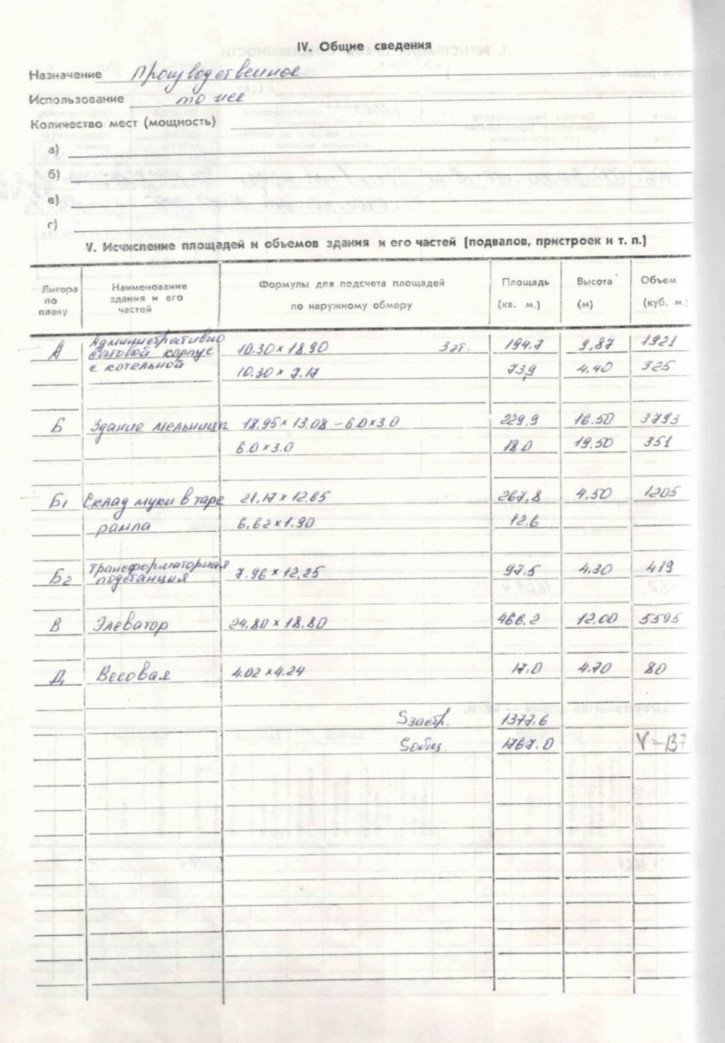 IV. Общие сведения
Назначение Производственное
Использование то же
Количество мест (мощность)
а)
б)
в)
г)
V. Исчисление площадей и объемов здания и его частей (подвалов, пристроек и т. п.)
Литера по плану Наименование здания и его частей Формулы для подсчета площадей по наружному обмеру Площадь (кв. м.) Высота (м) Объем (куб. м.
А Административно 10.30 × 18.90 3 эт. 194.7 9,87 1921
бытовой корпус
с котельной 10.30 × 7.17 73,9 4.40 325
Б Здание мельницы 18.95 × 13.08 – 6.0×3.0 229,9 16.50 3793
6.0×3.0 18.0 19.50 351
Б1 Склад муки в таре 21,17 × 12.65 267,8 4.50 1205
рампа 6,62×1.90 12.6
Б2 Трансформаторная 7.96 × 12,25 97.5 4.30 419
подстанция
В Элеватор 24.80 × 18.80 466.2 12.00 5595
Д Весовая 4.02 × 4.24 17.0 4.70 80
Sзастр. 1377.6
Sобщ 1767.0 V=137